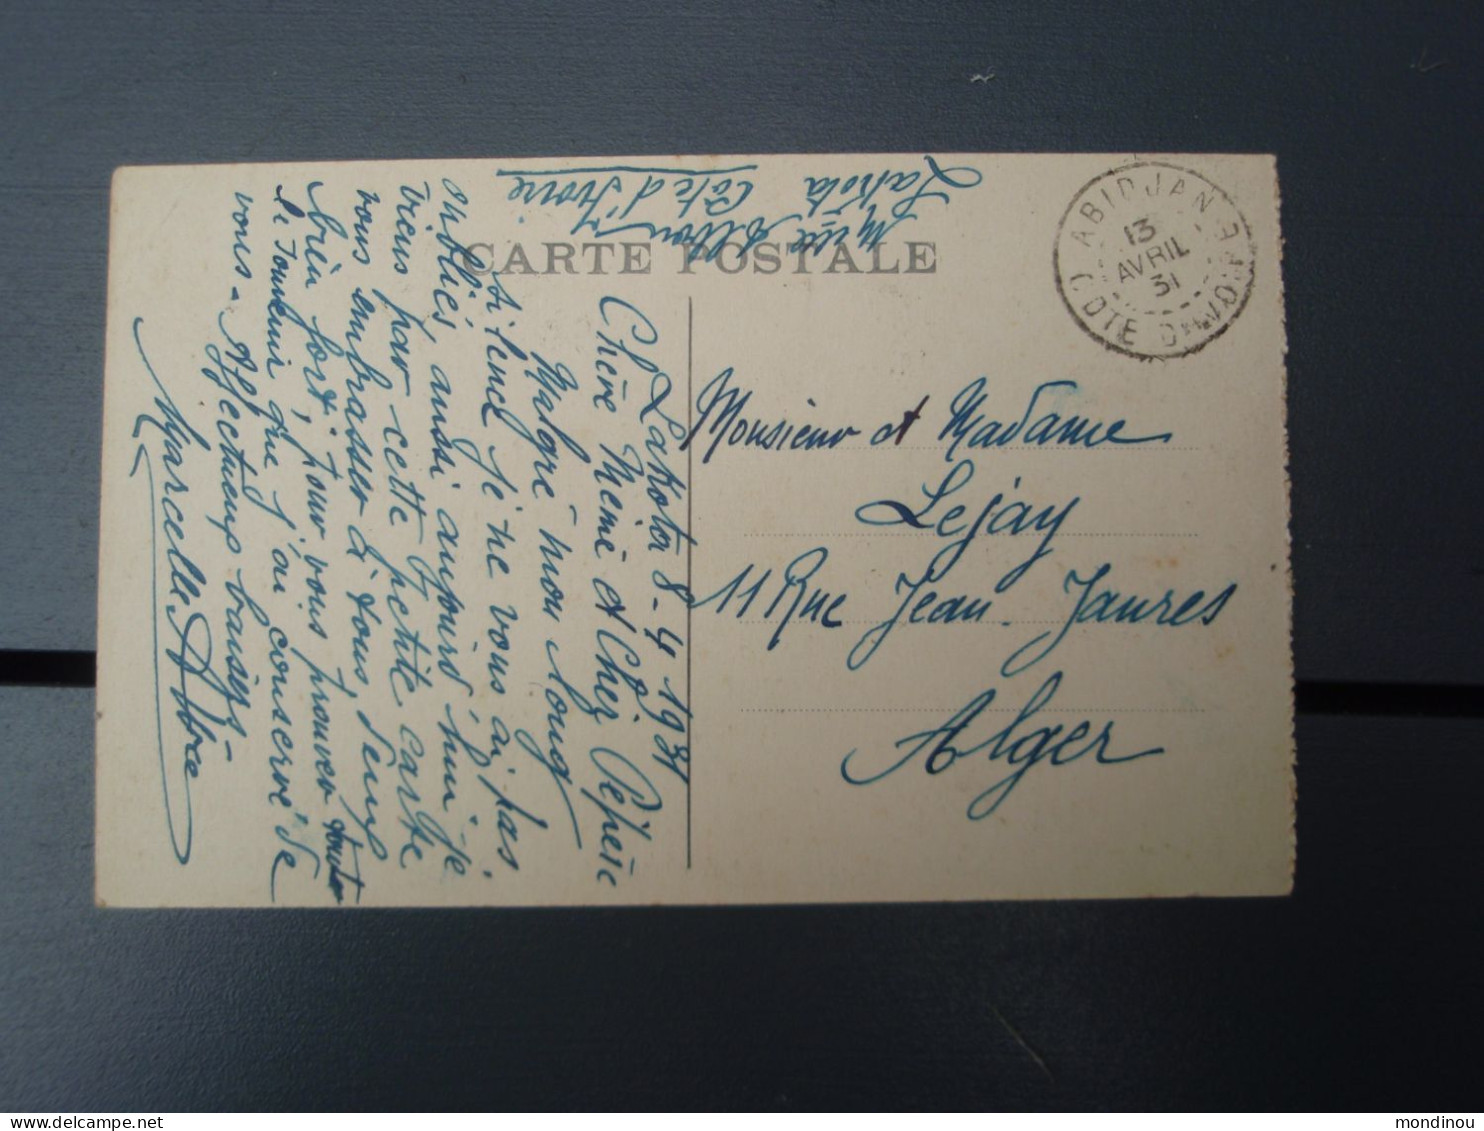 CARTE POSTALE
Lakota
Côte d'Ivoire
ABIDJAN
13
AVRIL
31
COTE D'IVOIRE
Monsieur et Madame
Lejay
11 Rue Jean-Jaures
Alger
Lakota 8-4 1931
Chère Mémé et Cher Pépère
Malgré mon long
silence je ne vous ai pas
oubliés, aussi aujourd'hui je
viens par cette petite carte
vous embrasser à tous deux
bien fort, pour vous prouver toute
le souvenir que j'ai conservé de
vous - Affectueux baisers -
Marcelle
mondinou